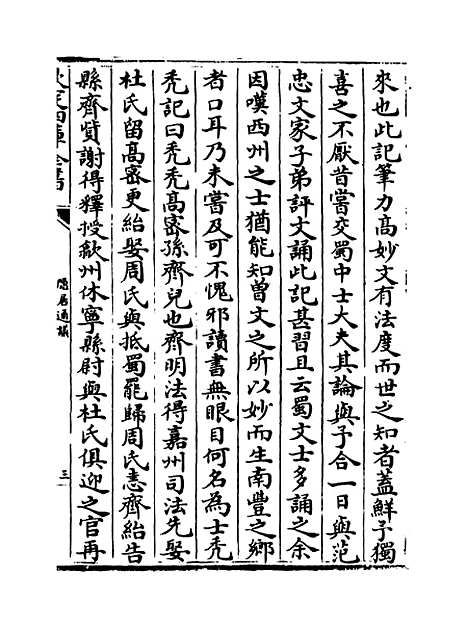 來也此記筆力高妙文有法度而世之知者蓋鮮予獨
喜之不厭昔嘗交蜀中士大夫其論與予合一日與范
忠文家子弟評文誦此記甚習且云蜀文士多誦之余
因嘆西州之士猶能知曽文之所以妙而生南豐之鄉
者口耳乃未嘗及可不愧邪讀書無眼目何名為士秃
秃記曰秃秃高宻孫齊兒也齊明法得嘉州司法先娶
杜氏留高宻更紿娶周氏與抵蜀罷歸周氏恚齊紿告
縣齊貲謝得釋授歙州休寧縣尉與杜氏俱迎之官再
欽定四庫全書
隱居通議
三